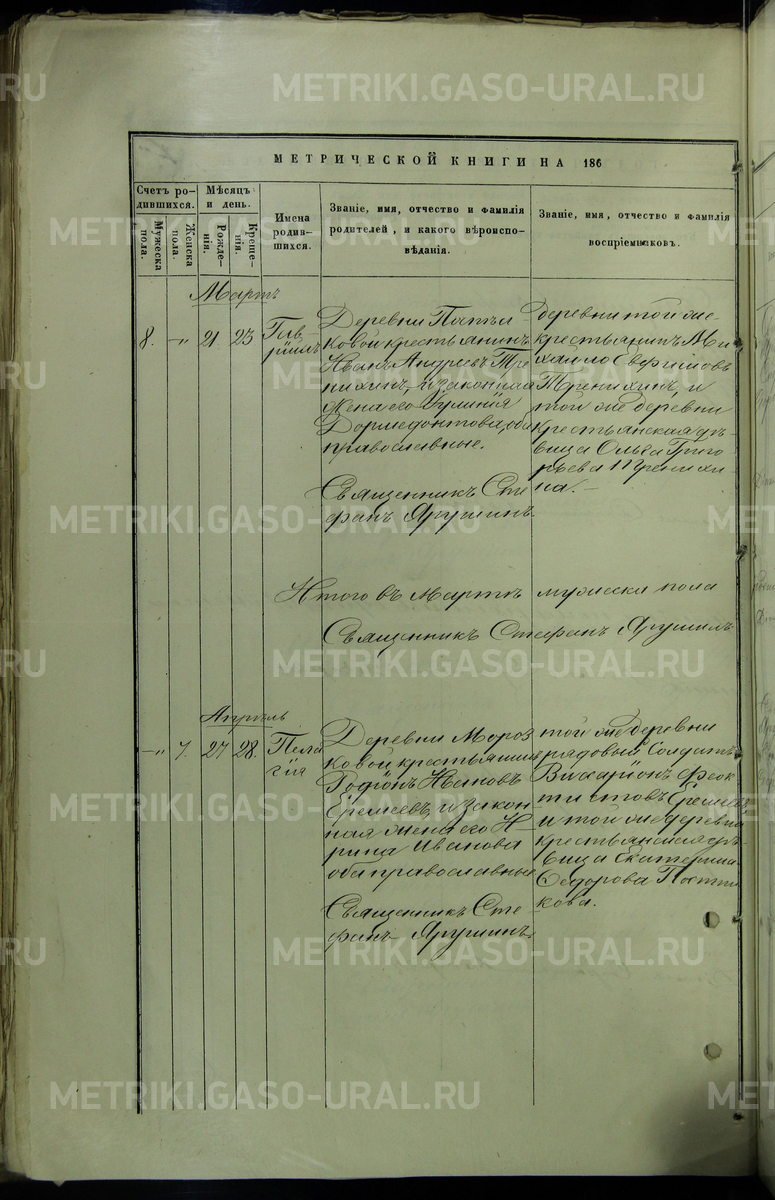 МЕТРИЧЕСКОЙ КНИГИ НА 186
Счетъ ро-
дившихся.
Мужеска
пола.
Женска
пола.
Мѣсяцъ
и день.
Рожде-
нія.
Креще-
нія.
Имена
родив-
шихся.
Званіе, имя, отчество и фамилія
родителей, и какого вѣроиспо-
вѣданія.
Званіе, имя, отчество и фамилія
воспріемниковъ.
Мартъ
8. -"- 21 23
Гав
ріилъ
Деревни
ковой крестьянинъ
Иванъ Андреевъ Тре
нихинъ, и законная
жена его
Дормедонтова, оба
православные.
Священникъ Сте
фанъ Ярушинъ.
деревни той же
крестьянинъ Ми
хаило Евфимовъ
Тренихинъ, и
той же деревни
крестьянская дѣ-
вица Ольга Григо
рьева Трених
на.-
Итого въ Мартѣ мужеска пола
Священникъ Стефанъ Ярушинъ
Апрѣль
-"- 7. 27 28.
Пела
гія
Деревни Мороз
ковой крестьянинъ
Родіонъ Ивановъ
Еремеевъ, и закон
ная жена его И
рина Иванова
оба православные
Священникъ Сте
фанъ Ярушинъ.
той же деревни
рядовый Солдатъ
Висаріонъ Феок
тистовъ Еремеевъ
и той же деревни
крестьянская дѣ-
вица Екатерина
Федорова
кова.
METRIKI.GASO-URAL.RU